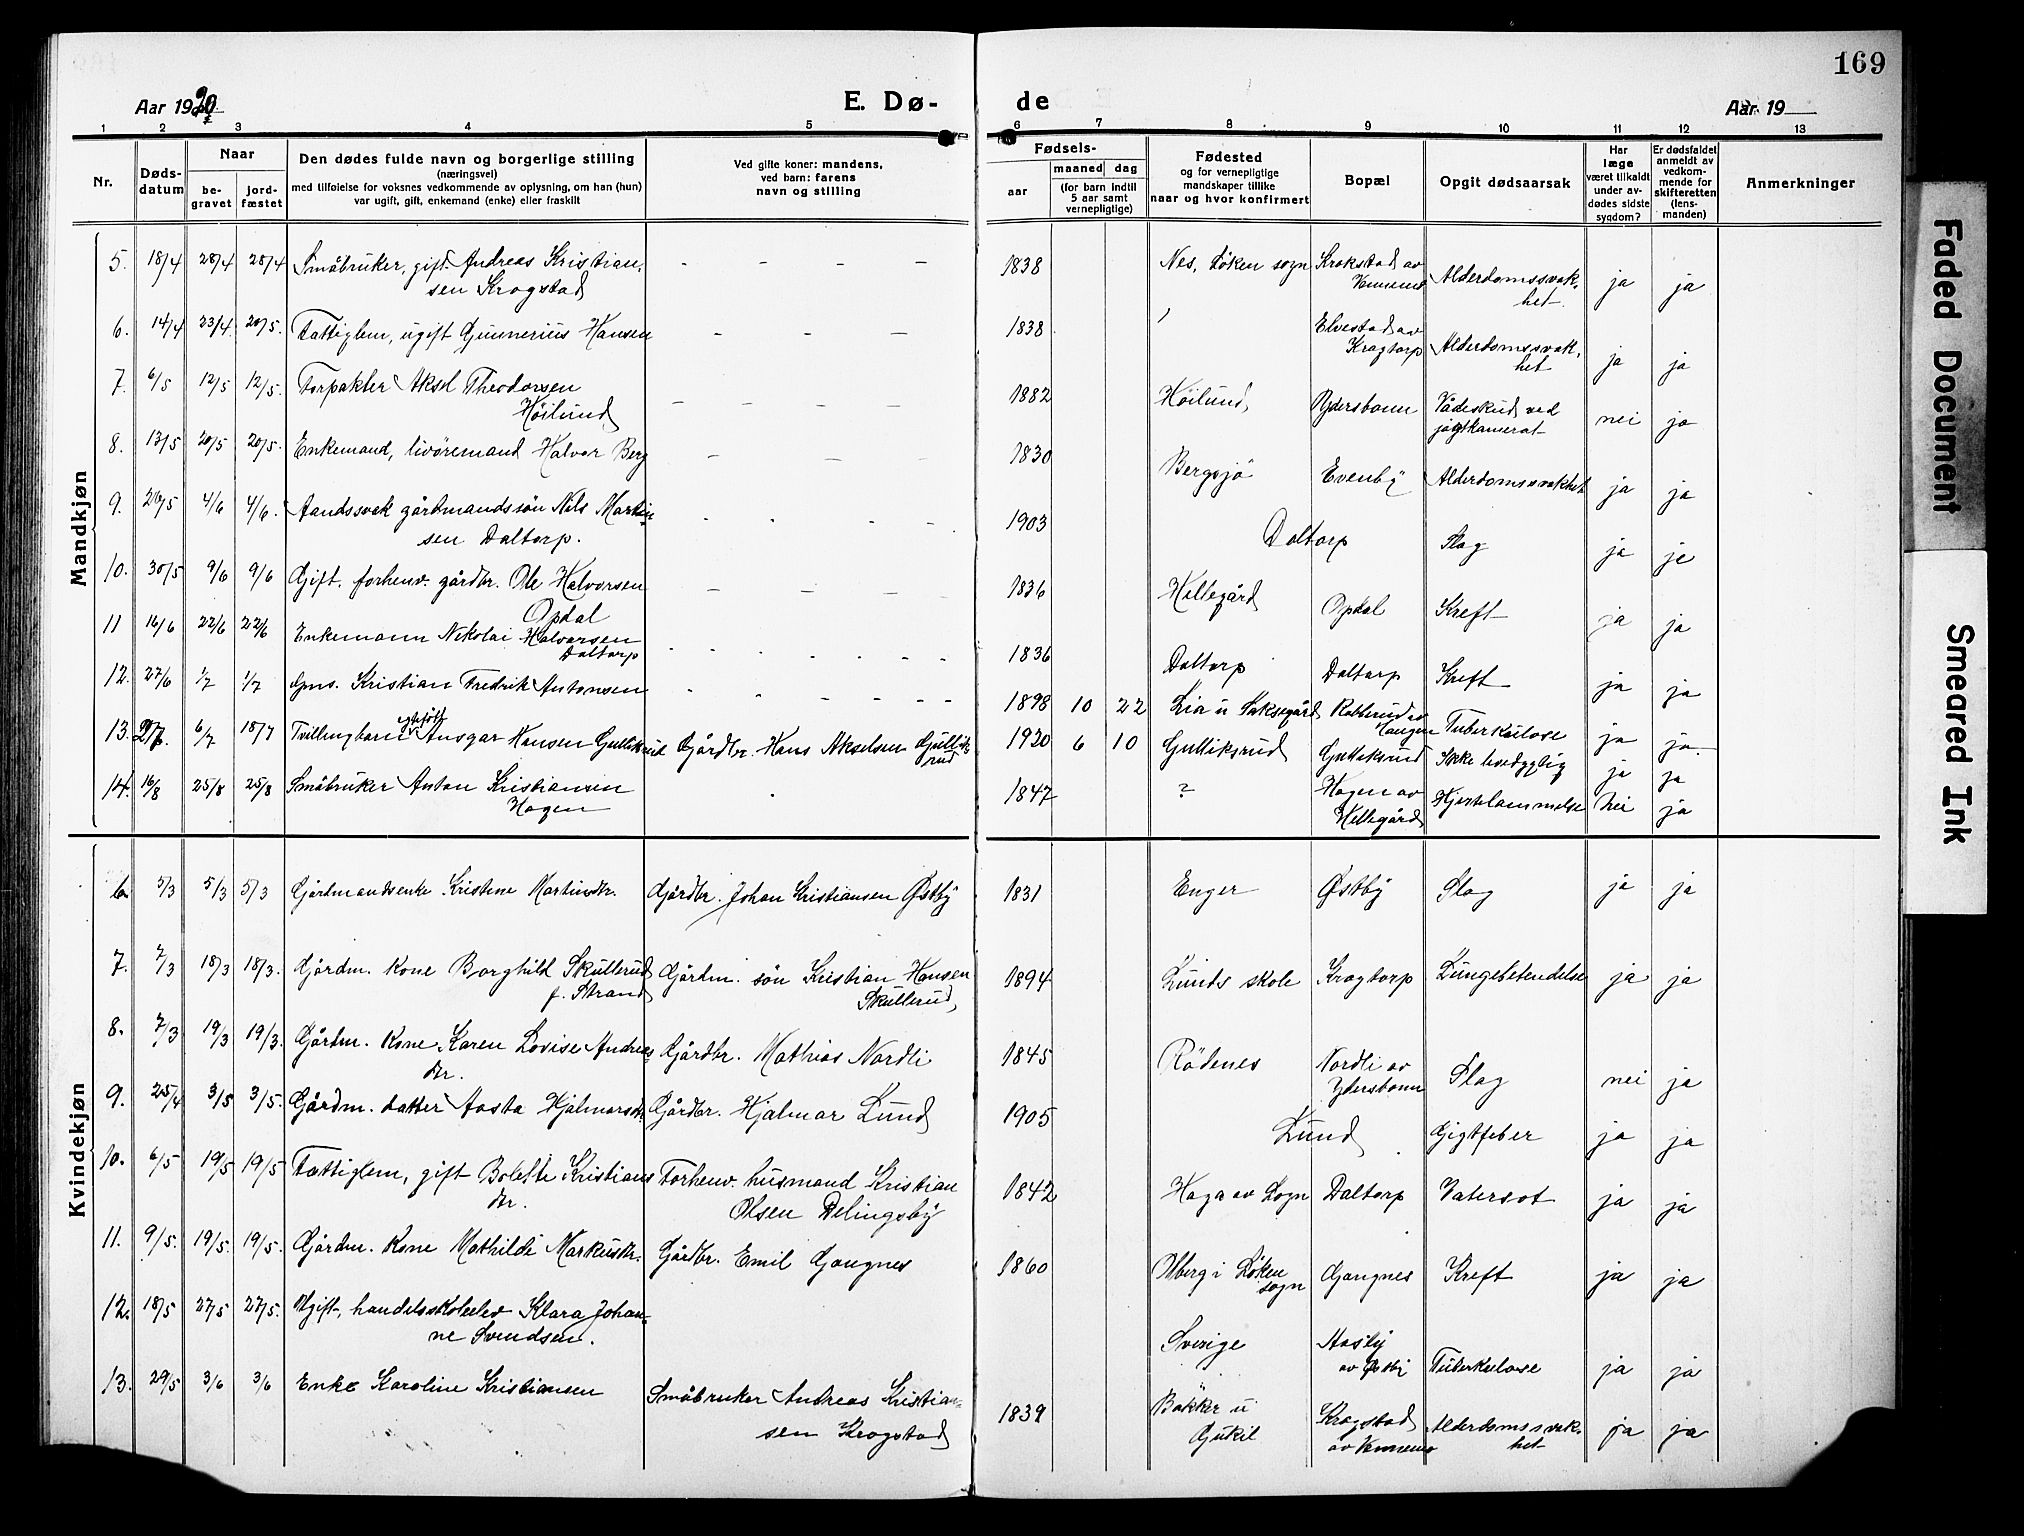 169
Aar 1920
E. Dø-
de
Aar 19
1 2 3 4 5 6 7 8 9 10 11 12 13
Nr.
Døds-
datum
Naar
be-
gravet
jord-
fæstet
Den dødes fulde navn og borgerlige stilling
(næringsvei)
med tilføielse for voksnes vedkommende av oplysning, om han (hun)
var ugift, gift, enkemand (enke) eller fraskilt
Ved gifte koner: mandens,
ved barn: farens
navn og stilling
Fødsels-
aar
maaned dag
(for barn indtil
5 aar samt
vernepligtige)
Fødested
og for vernepligtige
mandskaper tillike
naar og hvor konfirmert
Bopæl
Opgit dødsaarsak
Har
læge
været tilkaldt
under av-
dødes sidste
sygdom?
Er dødsfaldet
anmeldt av
vedkom-
mende for
skifteretten
(lens-
manden)
Anmerkninger
Mandkjøn
5. 18/4 28/4 28/4 Småbruker, gift. Andreas Kristian- - - - - 1838 Nes, Løken sogn Krokstad av Alderdomssvak- ja ja
sen Krogstad Vennemo het.
6. 14/4 23/4 20/5. Fattiglem, ugift Gunnerius Hansen - - - 1838 Elvestad av Alderdomssvak- ja ja
Kragtorp het
7. 6/5 12/5 12/5. Forpakter Aksel Theodorsen - - - - 1882 Höilund Ydersbonn Vådeskud ved nei ja
Höilund jagtkamerat
8. 13/5 20/5 20/5. Enkemand, livöremand Halvor Berg - - - 1830 Bergsjö Evenby Alderdomssvakhet ja ja
9. 26/5 4/6 4/6. Aandssvak gårdmandssön Nils Martin- 1903 Daltorp Slag ja ja
sen Daltorp.
10. 30/5 9/6 9/6 Gift, forhenv. gårdbr. Ole Halvorsen - - - - 1836 Hellegård Opdal Kreft ja ja
Opdal
11 16/6 22/6 22/6 Enkemann Nikolai Halvorsen 1836 Daltorp Daltorp Kreft ja ja
Daltorp
12. 27/6 1/7 1/7 Gms. Kristian Fredrik Antonsen 1898 10 22 Lia u Saksegård Rabberud av Tuberkulose ja ja
Haugen
13. 6/7 18/7 Tvillingbarn Ansgar Hansen Gulliksrud Gårdbr. Hans Akselsen Gulliks- 1920 6 10 Gulliksrud Gulliksrud Ikke livedygtig ja ja
rud
14. 16/8 25/8 25/8 Småbruker Anton Kristiansen 1847 ? Hagen av Hjertelammelse nei ja
Hagen Hellegård
Kvindekjøn
6. 5/3 5/3 5/3 Gårdmandsenke Kristene Martinsdtr. Gårdbr. Johan Kristiansen Østby 1831 Enger Østby Slag ja ja
7. 7/3 18/3 18/3. Gårdm. kone Borghild Skullerud Gårdm. sön Kristian Hansen 1894 Lunds skole Kragtorp Lungebetendelse ja ja
f. Strand Skullerud
8. 7/3 19/3 19/3. Gårdm. kone Karen Lovise Andreas- Gårdbr. Mathias Nordli 1845 Rödenes Nordli av Slag nei ja
dtr. Ydersbonn
9. 25/4 3/5 3/5. Gårdm. datter Aasta Hjalmarsdtr. Gårdbr. Hjalmar Lund 1905 Lund Gigtfeber ja ja
10. 6/5 19/5 19/5 Fattiglem, gift Bolette Kristians Forhenv. husmand Kristian 1842 Haga av Sogn Daltorp Vatersot ja ja
dtr. Olsen Delingsby
11. 9/5. 19/5. 19/5. Gårdm. kone Mathilde Markusdtr. Gårdbr. Emil Gangnes 1860 Olberg i Løken Gangnes Kreft ja ja
sogn
12. 18/5 27/5 27/5. Ugift, handelsskoleelev Klara Johan- Sverige Aasly Tuberkulose ja ja
ne Svendsen. av Østbi
13. 29/5 3/6 3/6 Enke Karoline Kristiansen Småbruker Andreas Kristian- 1839 Bakker u Krogstad Alderdomssvak- ja ja
sen Krogstad Gukil av Vennemo het
Faded Document
Smeared Ink